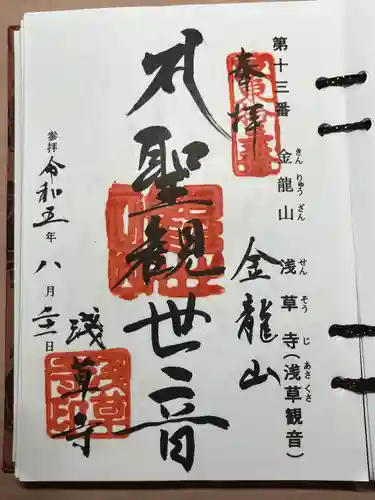 第十三番 金龍山 浅草寺(浅草観音)
きん りゅう ざん せん そう じ あさ くさ
奉拝
金龍山
聖観世音
浅草寺
参拝 令和五年 八月 二十一日